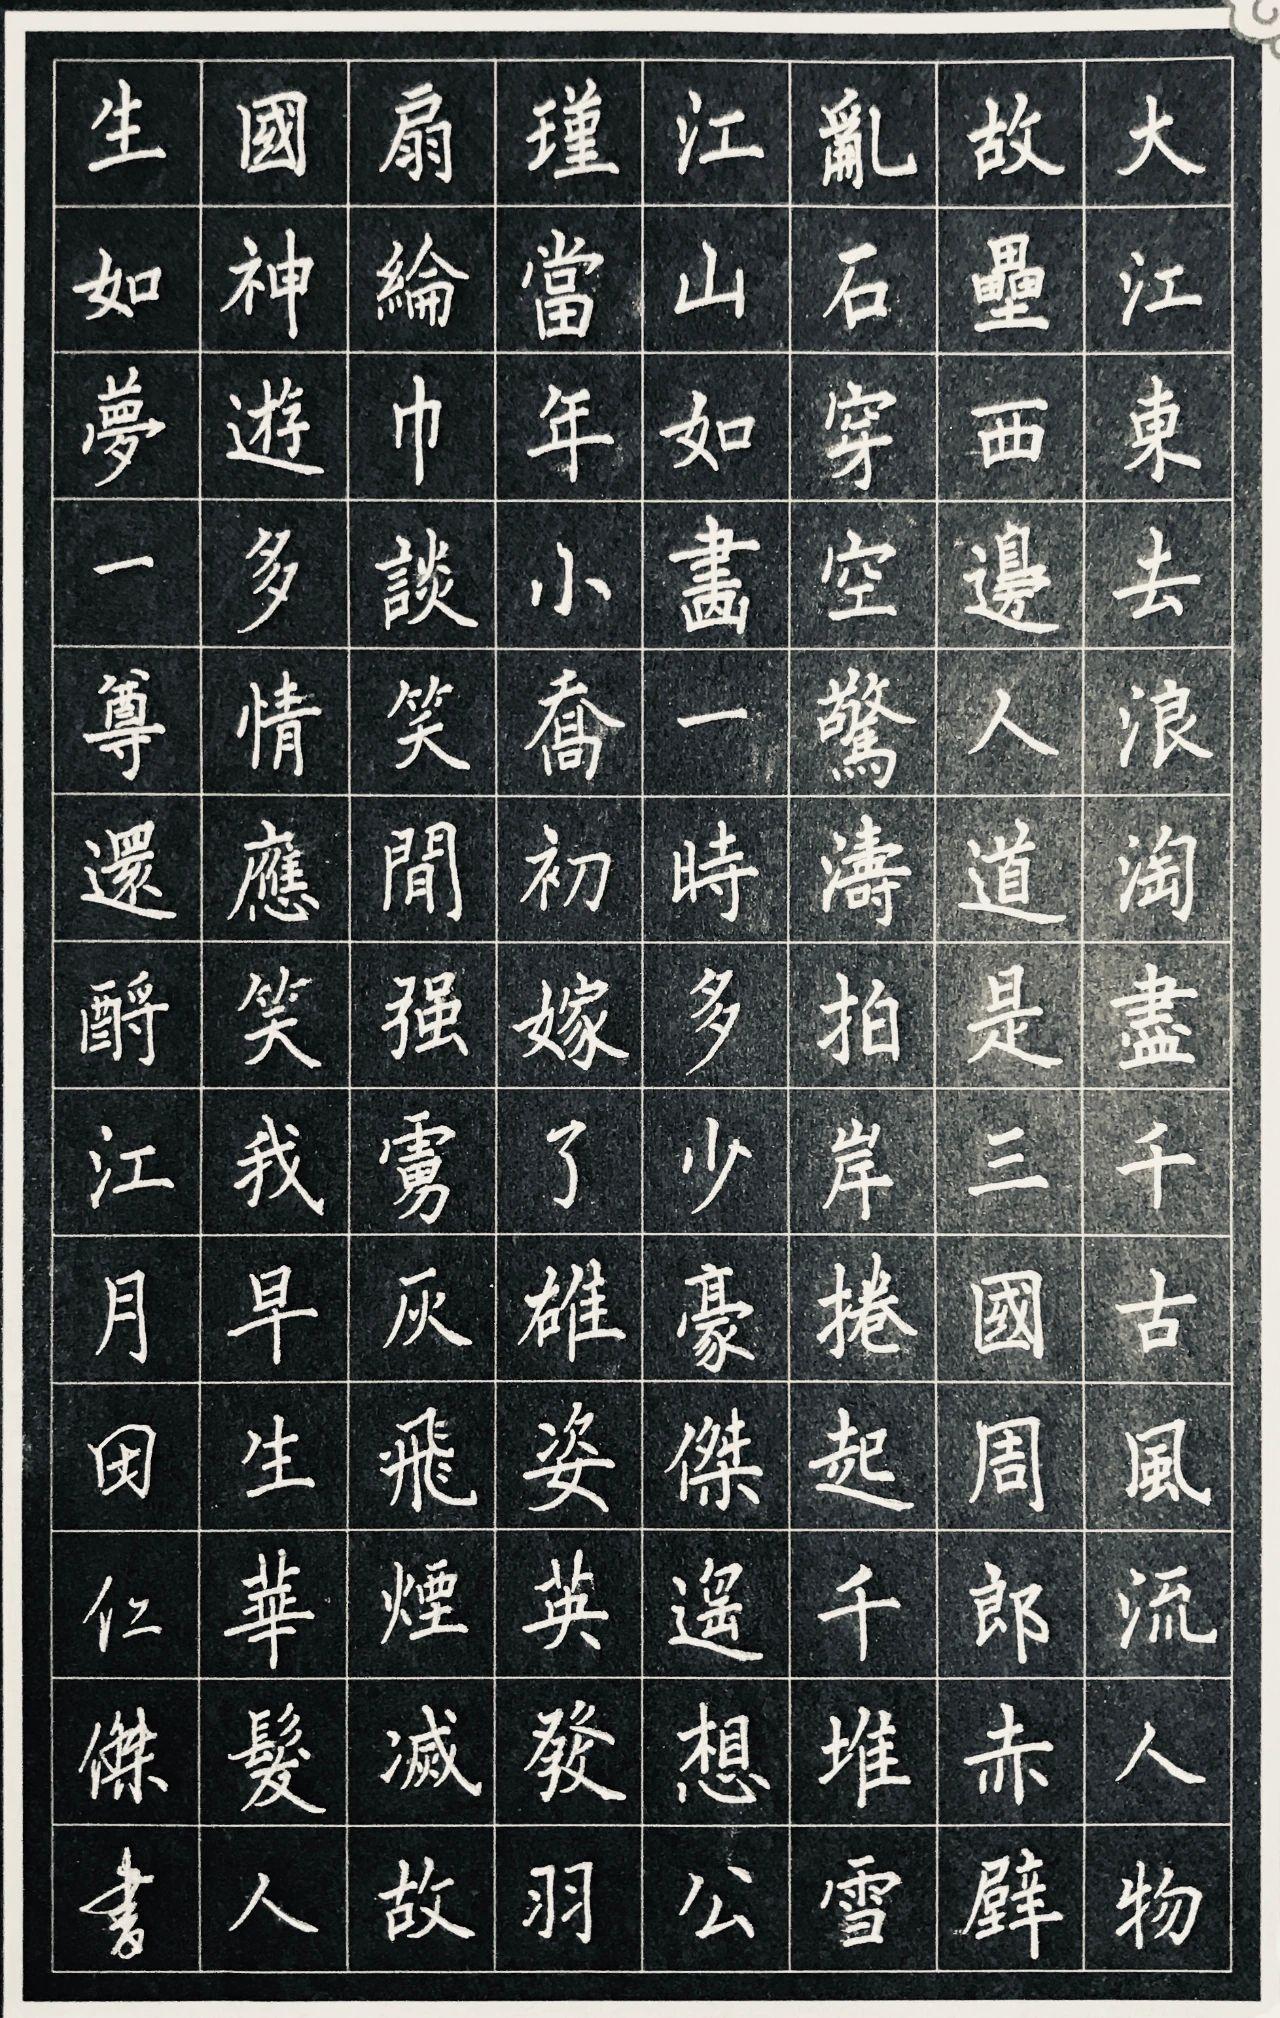 大江東去浪淘盡千古風流人物
故壘西邊人道是三國周郎赤壁
亂石穿空驚濤拍岸捲起千堆雪
江山如畫一時多少豪傑遙想公
瑾當年小喬初嫁了雄姿英發羽
扇綸巾談笑閒强虜灰飛煙滅故
國神遊多情應笑我早生華髮人
生如夢一尊還酹江月田仁傑書